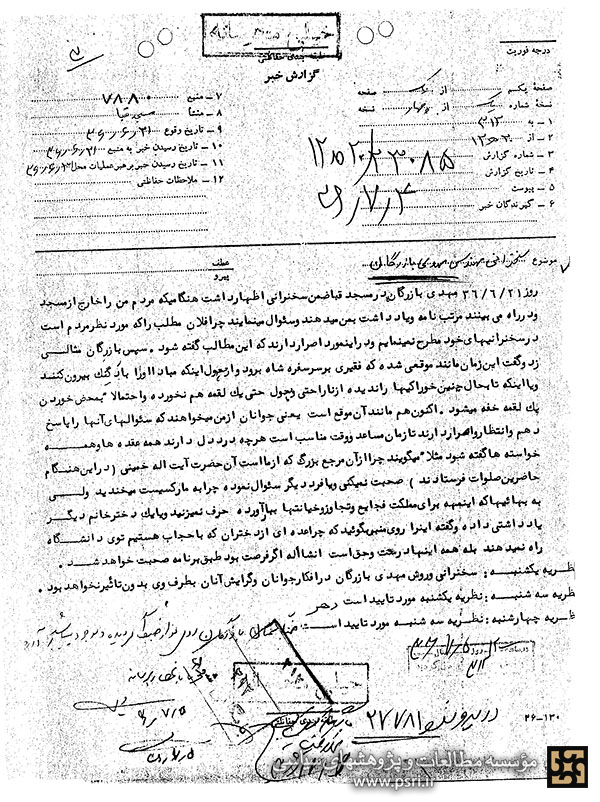 خیلی محرمانه
طبقه بندی حفاظتی
گزارش خبر
درجه فوریت
صفحه یکم از یک صفحه
نسخه شماره یک از چهار نسخه
۱ - به ۳۱۲
۲ - از ۲۰ه۱۲
۳ - شماره گزارش ۲۳۰۸۵ / ۲۰ه۱۲
۴ - تاریخ گزارش ۳۶/۷/۴
۵ - پیوست
۶ - گیرندگان خبر
۷ - منبع ۷۸۸۰
۸ - منشا مسجد قبا
۹ - تاریخ وقوع ۳۶/۶/۲۱
۱۰ - تاریخ رسیدن خبر به منبع ۳۶/۶/۲۱
۱۱ - تاریخ رسیدن خبر به رهبر عملیات محل
۱۲ - ملاحظات حفاظتی
موضوع سخنرانی مهندس مهدی بازرگان
عطف
پیرو
روز ۳۶/۶/۲۱ مهدی بازرگان در مسجد قبا ضمن سخنرانی اظهار داشت هنگامیکه مردم من را خارج از مسجد
و در راه می بینند مرتب نامه و یادداشت بمن میدهند و سئوال مینمایند چرا فلان مطلب را که مورد نظر مردم است
در سخنرانیهای خود مطرح نمینمایم و در اینمورد اصرار دارند که این مطالب گفته شود . سپس بازرگان مثالی
زد و گفت این زمان مانند موقعی شده که فقیری بر سر سفره شاه برود و از هول اینکه مبادا او را با کتک بیرون کنند
و یا اینکه تا بحال چنین خوراکیها را ندیده از ناراحتی و هول حتی یک لقمه هم نخورده و احتمالا " بمحض خوردن
یک لقمه خفه میشود . اکنون هم مانند آن موقع است یعنی جوانان از من میخواهند که سئوالهای آنها را پاسخ
دهم و انتظار و اصرار دارند تا زمان مساعد و وقت مناسب است هرچه درد دل دارند همه عقده ها و همه
خواسته ها گفته شود مثلا " میگویند چرا از آن مرجع بزرگ که از ما است آن حضرت آیت اله خمینی ( در این هنگام
حاضرین صلوات فرستادند ) صحبت نمیکنی و یا فرد دیگر سئوال نموده چرا به مارکسیست میخندید ولی
به بهائیها که اینهمه برای مملکت فجایع و تجاوز و خیانتها ببار آورده حرف نمیزنید و یا یک دختر خانم دیگر
یادداشتی داده و گفته اینرا روی منبر بگوئید که چرا عده ای از دختران که با حجاب هستیم توی دانشگاه
راه نمیدهند بله همه اینها درست و حق است انشا اله اگر فرصت بود طبق برنامه صحبت خواهد شد .
نظریه یکشنبه : سخنرانی و روش مهدی بازرگان در افکار جوانان و گرایش آنان بطرف وی بدون تاثیر نخواهد بود .
نظریه سه شنبه : نظریه یکشنبه مورد تایید است
نظریه چهارشنبه : نظریه سه شنبه مورد تایید است
در پرونده ۲۷۷۸۱
۳۶-۱۳۰
مؤسسه مطالعات و پژوهشهای سیاسی
www.psri.ir